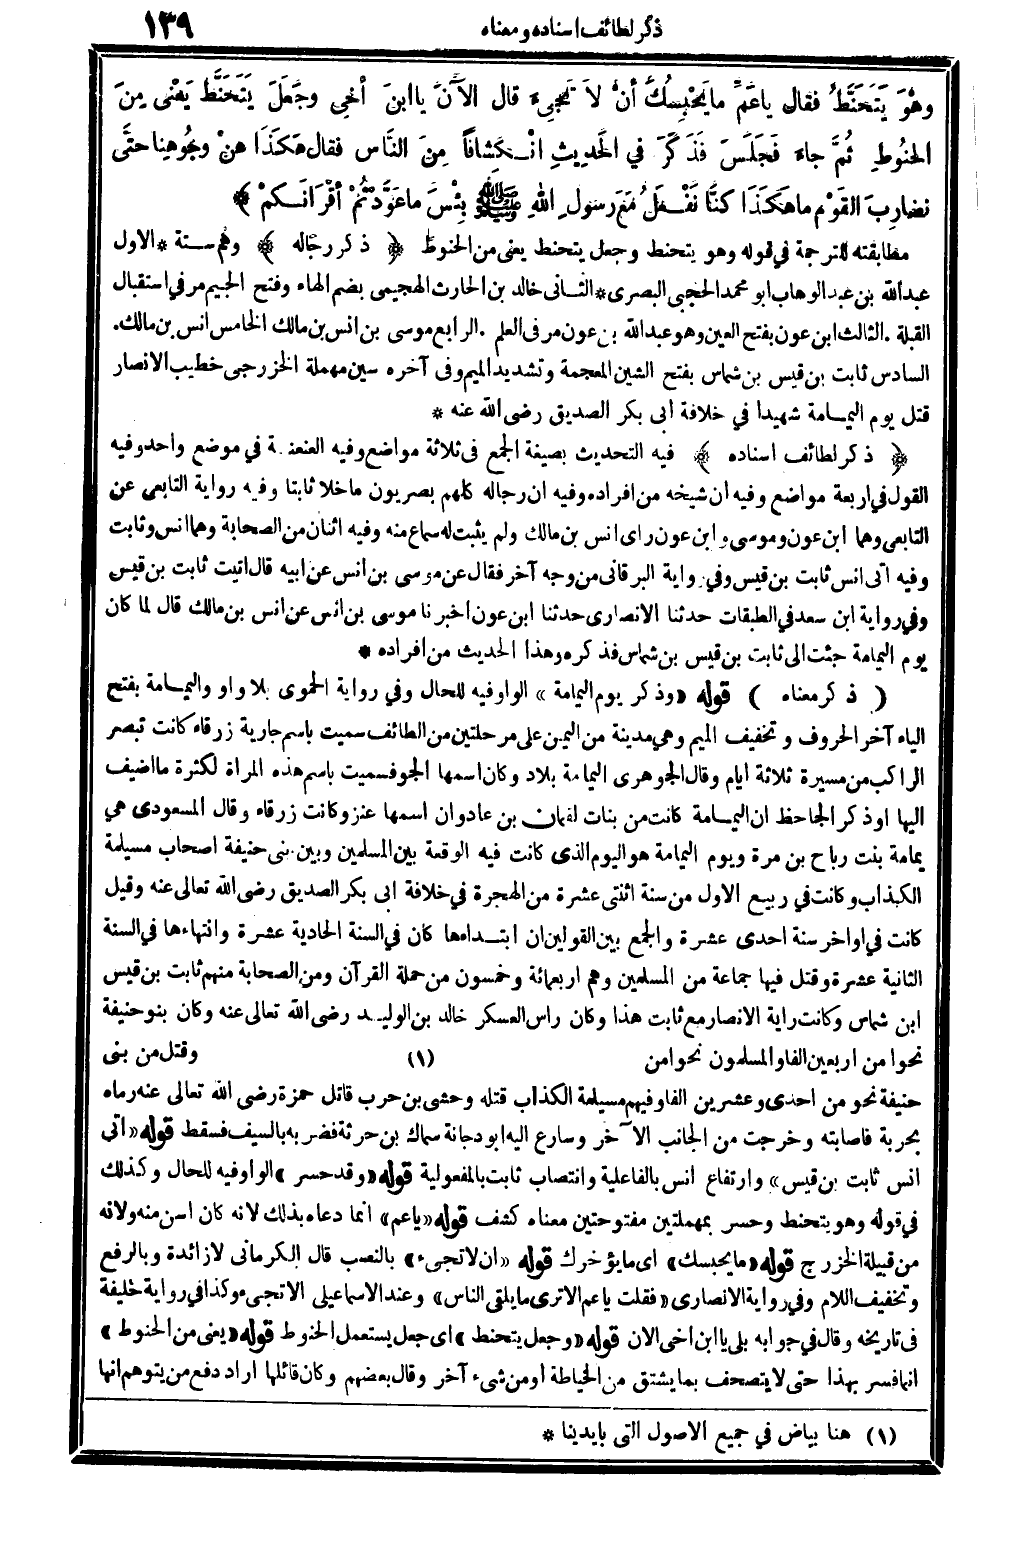 ذكر لطائف اسناده ومعناه ١٣٩
وهْوَ يَتَحَنَّطُ فقال ياعَمِّ مايَحْبِسُكَ أنْ لاَ تَجِيءَ قال الآنَ ياابنَ أخِي وجَعَلَ يَتَحَنَّطُ يَعْنِي مِنَ
الحَنُوطِ ثُمَّ جاءَ فَجَلَسَ فَذَكَرَ في الحَدِيثِ انْكِشافاً مِنَ النَّاس فقال هَكَذَا عنْ وجُوهِنا حتَّى
نضارِبَ القَوْمِ ماهَكَذَا كنَّا نَفْعَلُ مَعَ رسولِ اللهِ ﷺ بِئْسَ ماعَوَّدْتُمْ أقْرَانَكمْ ﴾
مطابقته للترجمة في قوله وهو يتحنط وجعل يتحنط يعني من الحنوط ﴿ ذكر رجاله ﴾ وهم ستة * الاول
عبدالله بن عبد الوهاب ابو محمد الحجبى البصرى * الثانى خالد بن الحارث الهجيمى بضم الهاء وفتح الجيم مر في استقبال
القبلة . الثالث ابن عون بفتح العين وهو عبد الله بن عون مر فى العلم . الرابع موسى بن انس بن مالك الخامس انس بن مالك.
السادس ثابت بن قيس بن شماس بفتح الشين المعجمة وتشديد الميم وفى آخره سين مهملة الخزرجى خطيب الانصار
قتل يوم اليمامة شهيدا في خلافة ابى بكر الصديق رضى الله عنه *
﴿ ذكر لطائف اسناده ﴾ فيه التحديث بصيغة الجمع فى ثلاثة مواضع وفيه العنعنة في موضع واحد وفيه
القول في اربعة مواضع وفيه ان شيخه من افراده وفيه ان رجاله كلهم بصريون ماخلا ثابتا وفيه رواية التابعى عن
التابعى وهما ابن عون وموسى وابن عون راى انس بن مالك ولم يثبت له سماع منه وفيه اثنان من الصحابة وهما انس وثابت
وفيه اتى انس ثابت بن قيس وفي رواية البرقانى من وجه آخر فقال عن موسى بن انس عن ابيه قال اتيت ثابت بن قيس
وفي رواية ابن سعد في الطبقات حدثنا الانصارى حدثنا ابن عون اخبرنا موسى بن انس عن انس بن مالك قال لما كان
يوم اليمامة جئت الى ثابت بن قيس بن شماس فذكره وهذا الحديث من افراده *
( ذكر معناه ) قوله «وذكر يوم اليمامة » الواو فيه للحال وفي رواية الحموى بلا واو واليمامة بفتح
الياء آخر الحروف وتخفيف الميم وهي مدينة من اليمن على مرحلتين من الطائف سميت باسم جارية زرقاء كانت تبصر
الراكب من مسيرة ثلاثة ايام وقال الجوهرى اليمامة بلاد وكان اسمها الجو فسميت باسم هذه المراة لكثرة مااضيف
اليها اوذكر الجاحظ ان اليمامة كانت من بنات لقمان بن عاد وان اسمها عنز وكانت زرقاء وقال المسعودى هي
يمامة بنت رباح بن مرة ويوم اليمامة هو اليوم الذى كانت فيه الوقعة بين المسلمين وبين بنى حنيفة اصحاب مسيلمة
الكذاب وكانت في ربيع الاول من سنة اثنتى عشرة من الهجرة في خلافة ابى بكر الصديق رضى الله تعالى عنه وقيل
كانت في اواخر سنة احدى عشرة والجمع بين القولين ان ابتداءها كان في السنة الحادية عشرة وانتهاءها في السنة
الثانية عشرة وقتل فيها جماعة من المسلمين وهم اربعمائة وخمسون من حملة القرآن ومن الصحابة منهم ثابت بن قيس
ابن شماس وكانت راية الانصار مع ثابت هذا وكان راس العسكر خالد بن الوليد رضى الله تعالى عنه وكان بنو حنيفة
نحوا من اربعين الفا والمسلمون نحوا من (١) وقتل من بنى
حنيفة نحو من احدى وعشرين الفا وفيهم مسيلمة الكذاب قتله وحشى بن حرب قاتل حمزة رضى الله تعالى عنه رماه
بحربة فاصابته وخرجت من الجانب الآخر وسارع اليه ابو دجانة سماك بن حرثة فضربه بالسيف فسقط قوله «اتى
انس ثابت بن قيس» وارتفاع انس بالفاعلية وانتصاب ثابت بالمفعولية قوله «وقد حسر » الواو فيه للحال وكذلك
في قوله وهو يتحنط وحسر بمهملتين مفتوحتين معناه كشف قوله «ياعم» انما دعاه بذلك لانه كان اسن منه ولانه
من قبيلة الخزرج قوله «مايحبسك» اى مايؤخرك قوله «ان لاتجىء» بالنصب قال الكرمانى لا زائدة وبالرفع
وتخفيف اللام وفي رواية الانصارى «فقلت ياعم الا ترى مايلقى الناس» وعند الاسماعيلى الاتجىء وكذا في رواية خليفة
فى تاريخه وقال في جوابه بلى يا ابن اخى الان قوله «وجعل يتحنط » اى جعل يستعمل الحنوط قوله «يعنى من الحنوط »
انما فسر بهذا حتى لا يتصحف بما يشتق من الخياطة أو من شىء آخر وقال بعضهم وكان قائلها اراد دفع من يتوهم انها
(١) هنا بياض في جميع الاصول التى بايدينا *